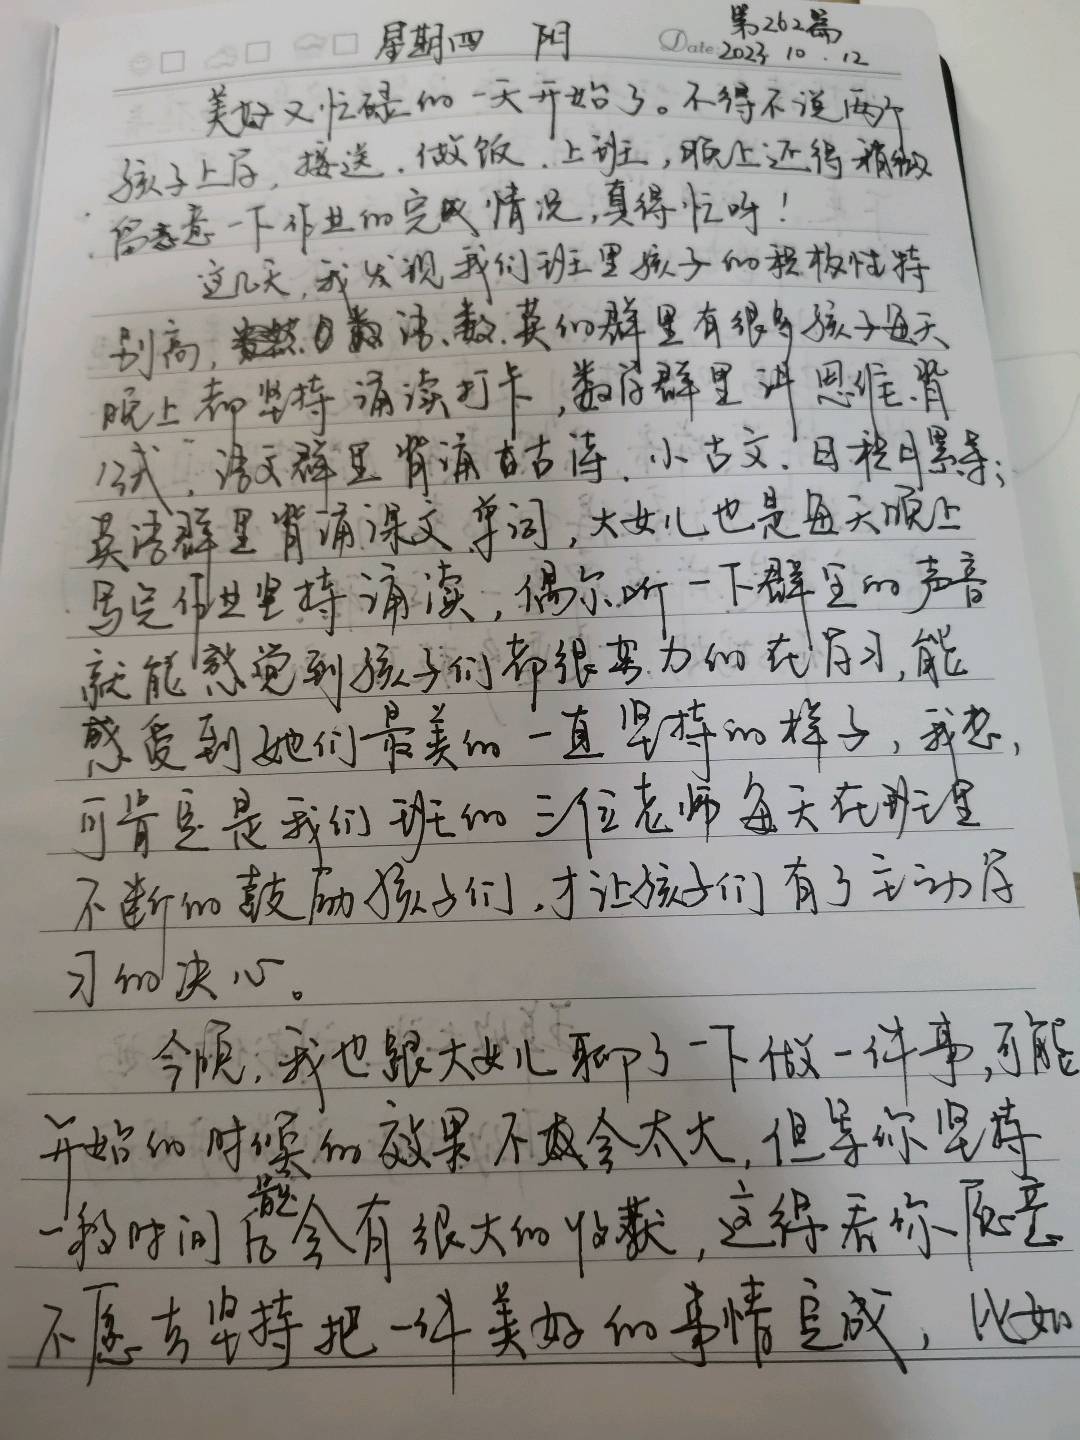 第262篇
星期四 阴 Date: 2023.10.12
美好又忙碌的一天开始了。不得不说两个
孩子上学,接送.做饭.上班,晚上还得稍微
留意一下作业的完成情况,真得忙呀!
这几天,我发现我们班里孩子的积极性特
别高,语.数.英的群里有很多孩子每天
晚上都坚持诵读打卡,数学群里讲思维.背
公式,语文群里背诵古诗.小古文.日积月累等;
英语群里背诵课文.单词,大女儿也是每天晚上
写完作业坚持诵读,偶尔听一下群里的声音
就能感觉到孩子们都很努力的在学习,能
感受到她们最美的一直坚持的样子,我想,
可肯定是我们班的三位老师每天在班里
不断的鼓励孩子们,才让孩子们有了主动学
习的决心。
今晚,我也跟大女儿聊了一下做一件事,可能
开始的时候的效果不会太大,但等你坚持
一段时间后能会有很大的收获,这得看你愿意
不愿去坚持把一件美好的事情完成,比如